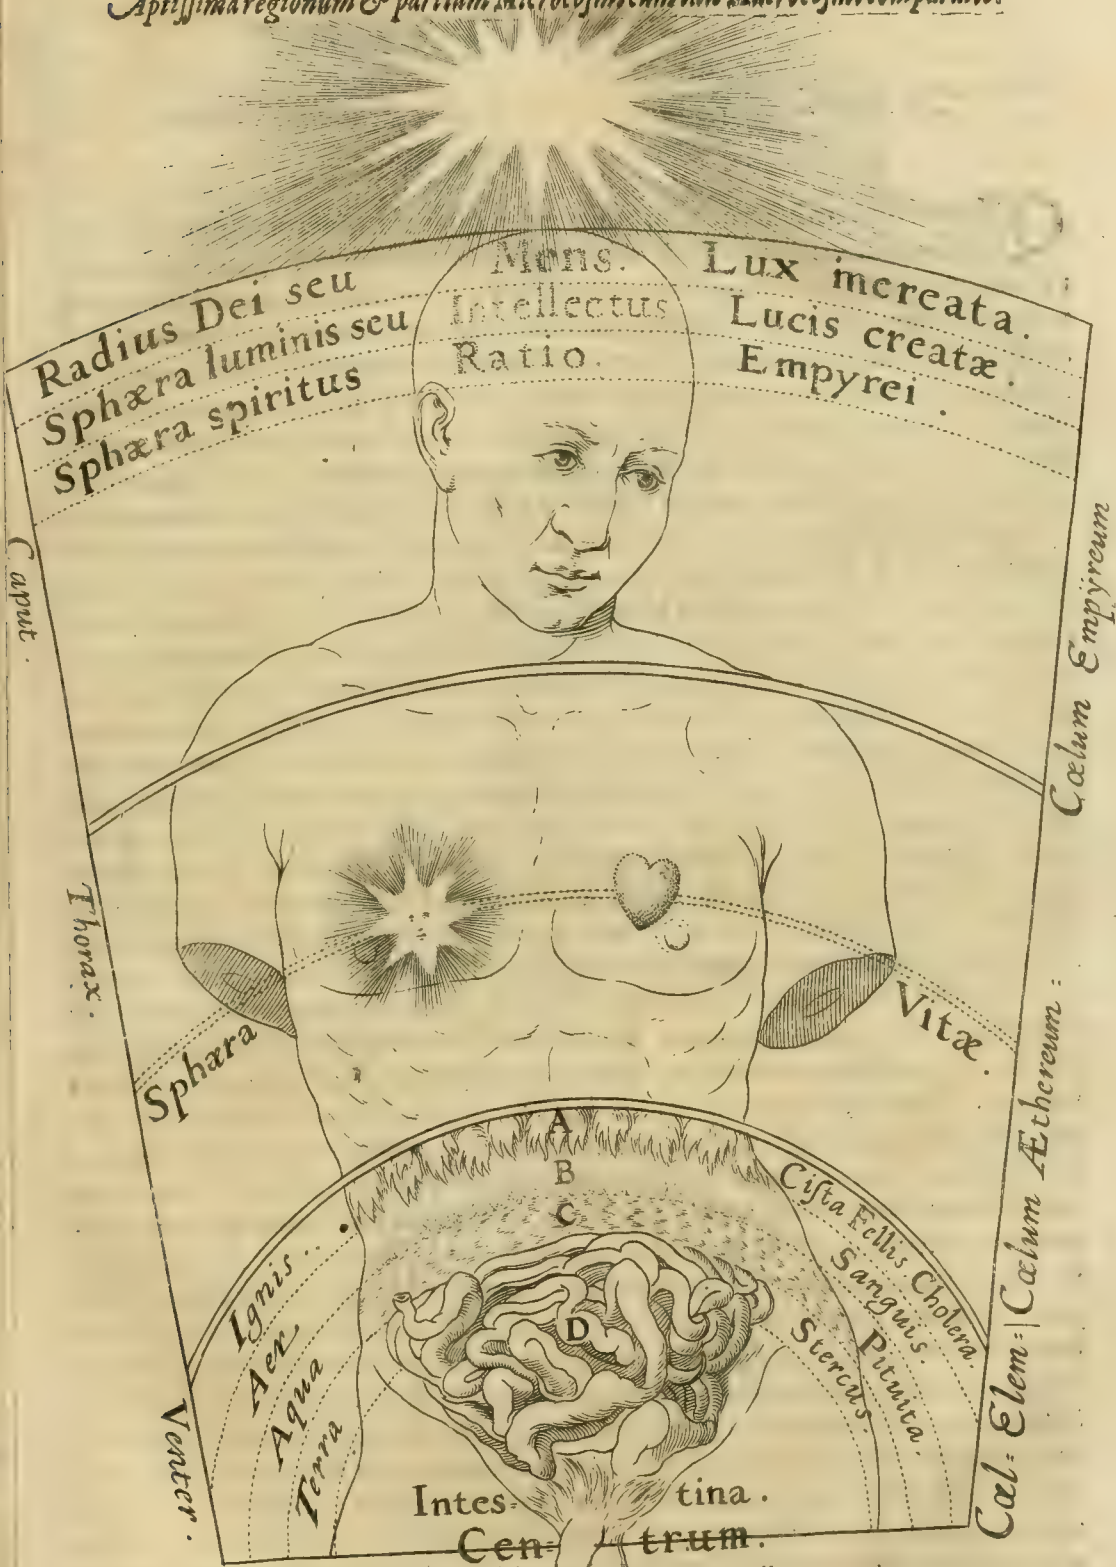 Aptissima regionum & partium Microcosmi cum
Radius Dei seu Mens. Lux increata.
Sphæra luminis seu Intellectus Lucis creatæ.
Sphæra spiritus Ratio. Empyrei.
Caput.
Cœlum Empÿreum
Thorax.
Sphæra Vitæ.
Cœlum Æthereum =
A
B
C
D
Ignis . .
Aer.
Aqua
Terra
Cista Fellis Cholera
Sanguis.
Pituita.
Stercus.
Venter.
Cœl = Elem =
Intes= tina.
Cen= trum.